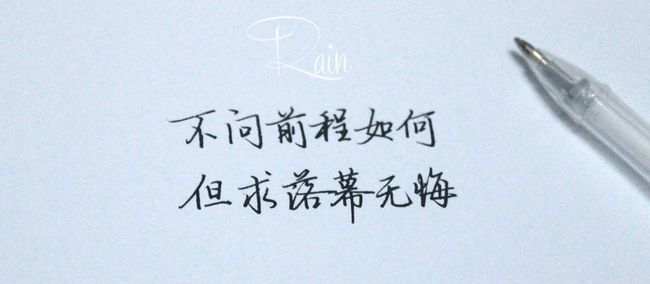 Rain
不问前程如何
但求落幕无悔